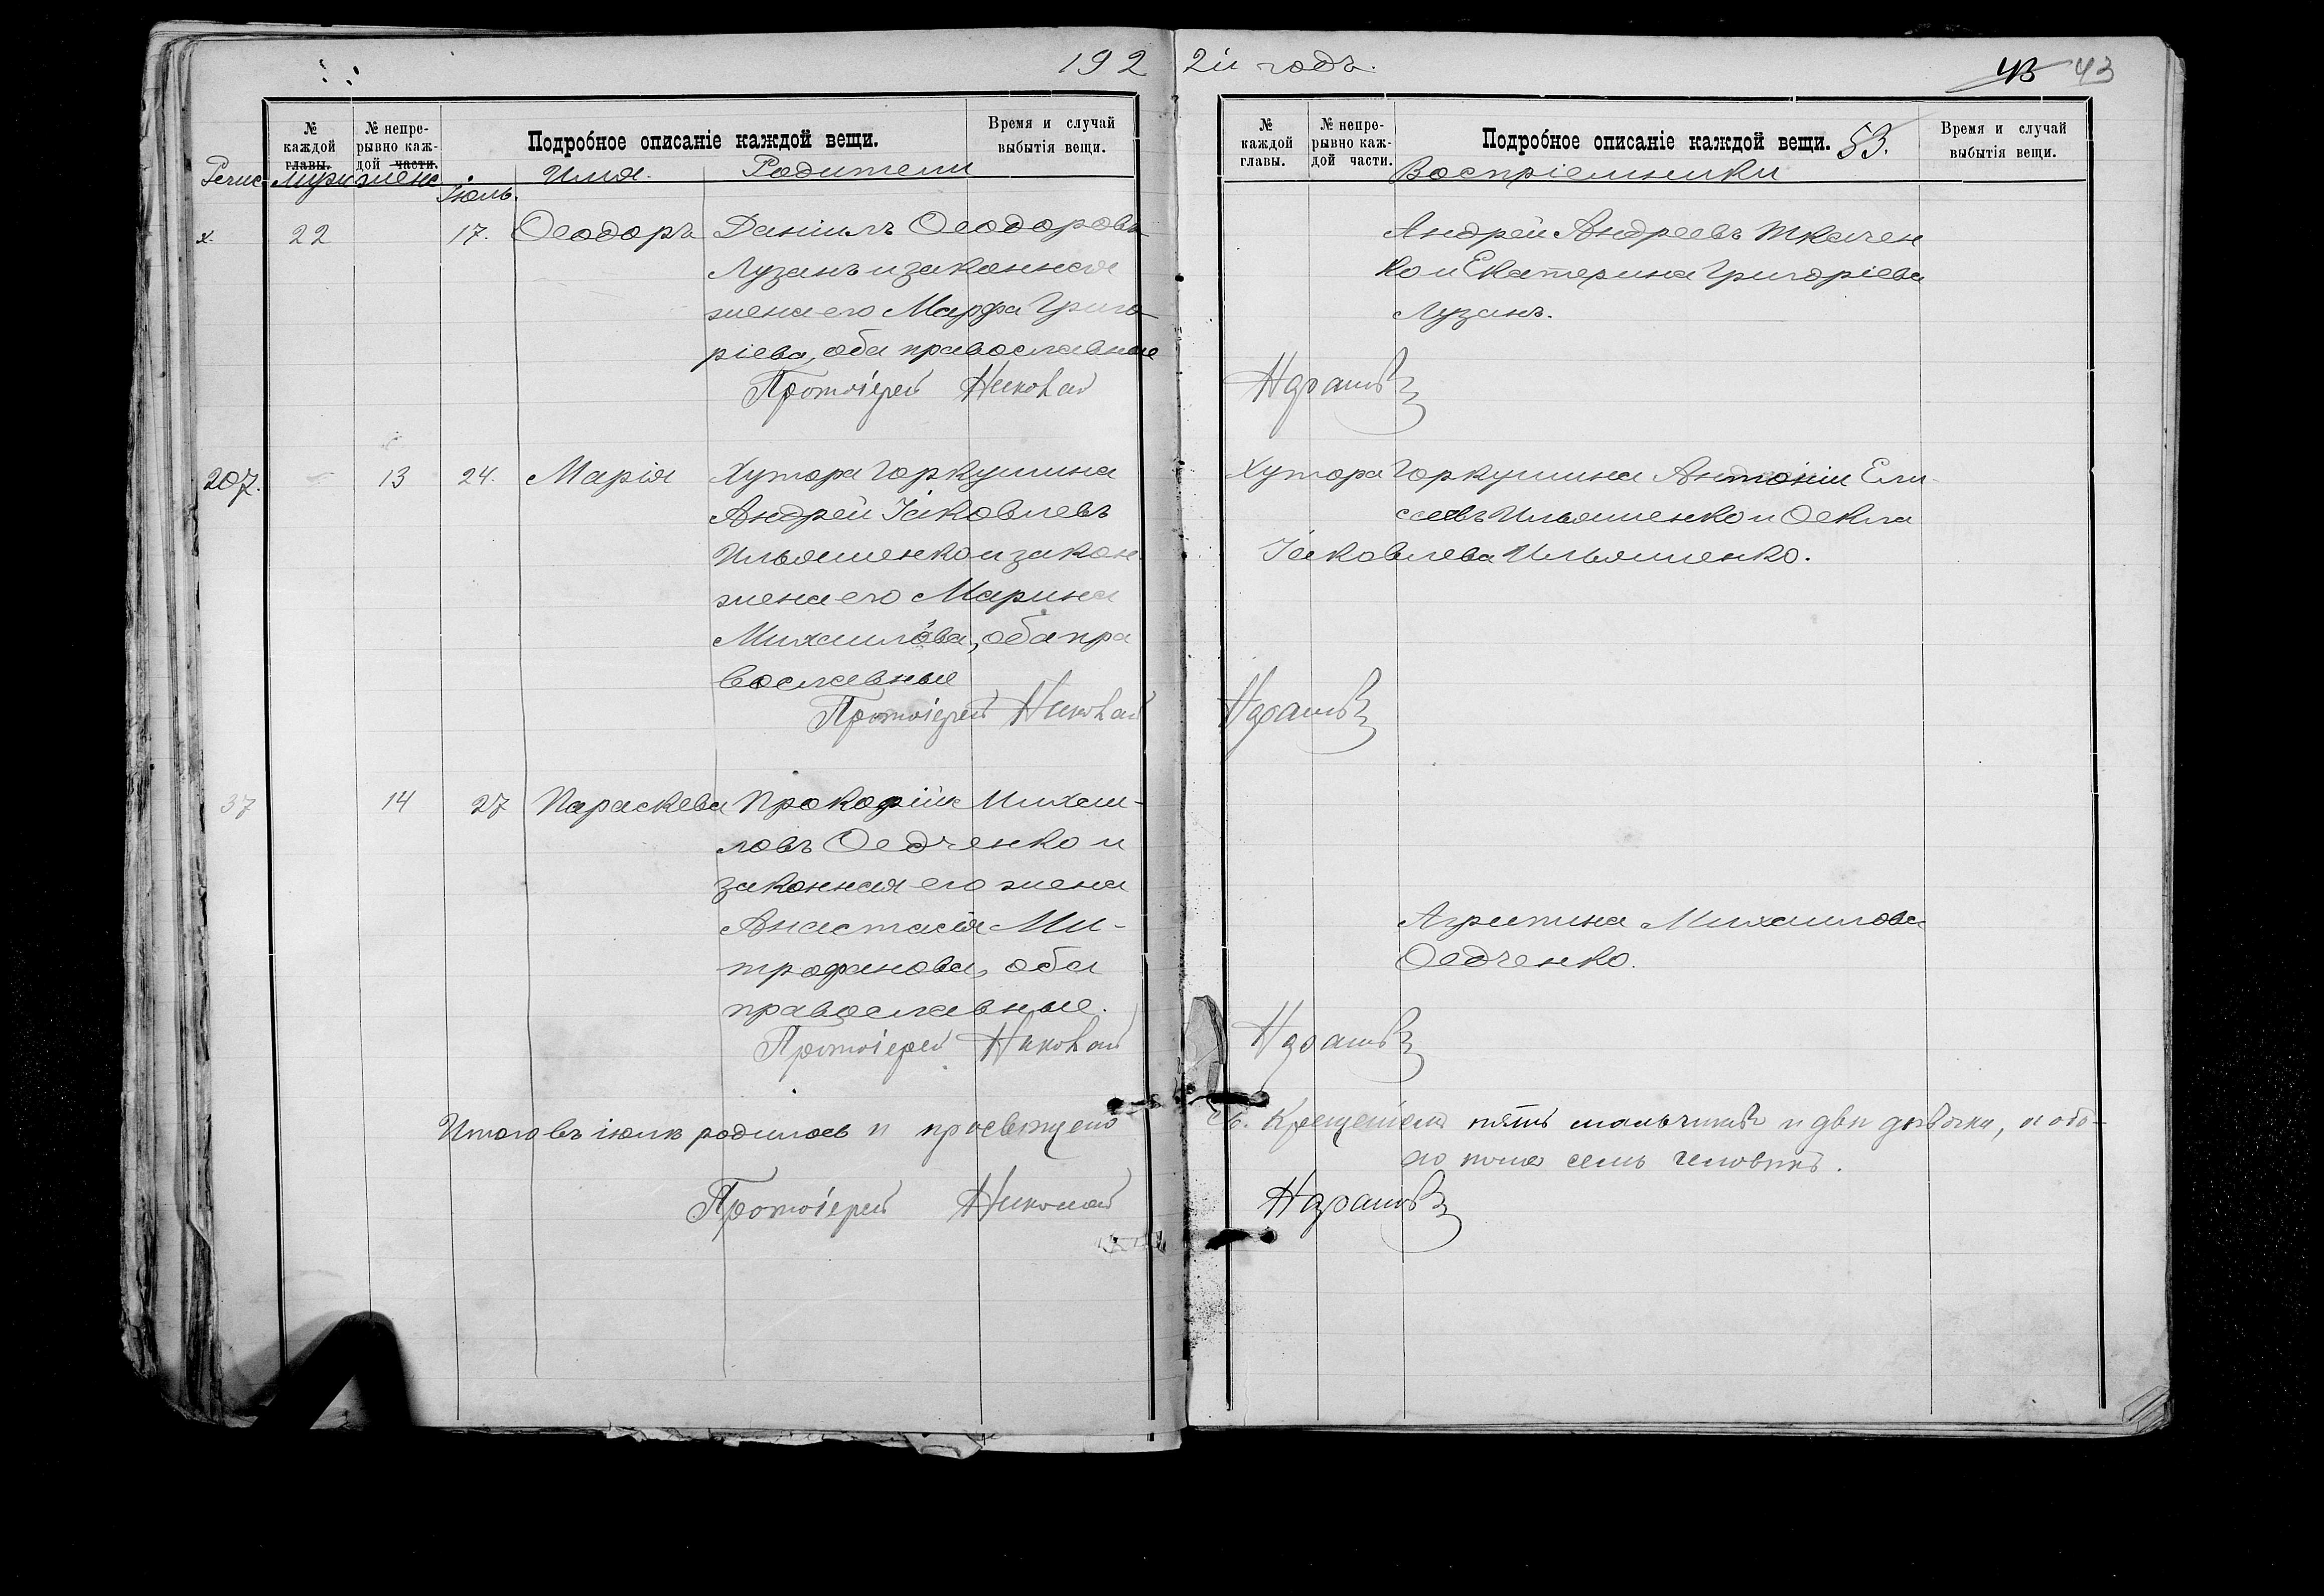 192
№ каждой главы.
№ непре-рывно каж-дой части.
Подробное описаніе каждой вещи.
Время и случай выбытія вещи.
муж
женс
Имя.
Родители
Іюль.
х.
22
17.
Ѳеодоръ
Даніилъ Ѳеодоровъ
Лузанъ и законная
жена его Марфа Григо-
ріева, оба православные
Протоіерей Николай
207.
13
24.
Марія
Хутора Горкушина
Андрей Іаковлевъ
Ильяшенко и закон.
жена его Марина
Михаилова, оба пра
вославные
Протоіерей Николай
37
14
27
Параскева
Прокофій Михаи-
ловъ Ѳедченко и
законная его жена
Анастасія Ми-
трофанова, оба
православные.
Протоіерей Николай
Итого въ іюлѣ родилось и просвѣщено
Протоіерей Николай
2й годъ.
43
43
№ каждой главы.
№ непре-рывно каж-дой части.
Подробное описаніе каждой вещи.
53.
Время и случай выбытія вещи.
Воспріемники
Андрей Андреевъ Ткачен
ко и Екатерина Григоріева
Лузанъ.
Хутора Горкушина Антоній Ели-
сеевъ Ильяшенко и Ѳекла
Іаковлева Ильяшенко.
Агрипина Михаилова
Ѳедченко.
Св. Крещеніемъ пять мальчиковъ и двѣ дѣвочки, а обо-
го пола семь человѣкъ.